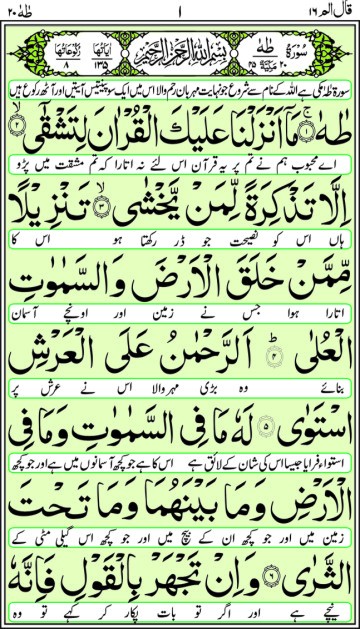 قال الم ١٦ ١ طٰهٰ ٢٠
سُوْرَةُ طٰهٰ بِسْمِ اللهِ الرَّحْمٰنِ الرَّحِيْمِ اٰيَاتُهَا ١٣٥ رُكُوْعَاتُهَا ٨
سورۃ طہٰ مکی ہے اللہ کے نام سے شروع جو نہایت مہربان رحم والا اس میں ایک سو پینتیس آیتیں اور آٹھ رکوع ہیں
طٰهٰ ۚ﴿۱﴾ مَاۤ اَنْزَلْنَا عَلَیْكَ الْقُرْاٰنَ لِتَشْقٰۤى ۙ﴿۲﴾
اے محبوب ہم نے تم پر یہ قرآن اس لئے نہ اتارا کہ تم مشقت میں پڑو
اِلَّا تَذْكِرَةً لِّمَنْ یَّخْشٰى ۙ﴿۳﴾ تَنْزِیْلًا
ہاں اس کو نصیحت جو ڈر رکھتا ہو اس کا
مِّمَّنْ خَلَقَ الْاَرْضَ وَالسَّمٰوٰتِ
اتارا ہوا جس نے زمین اور اونچے آسمان
الْعُلٰى ؕ﴿۴﴾ اَلرَّحْمٰنُ عَلَى الْعَرْشِ
بنائے وہ بڑی مہر والا اس نے عرش پر
اسْتَوٰى ﴿۵﴾ لَهٗ مَا فِی السَّمٰوٰتِ وَمَا فِی
استواء فرمایا جیسا اس کی شان کے لائق ہے اس کا ہے جو کچھ آسمانوں میں ہے اور جو کچھ
الْاَرْضِ وَمَا بَیْنَهُمَا وَمَا تَحْتَ
زمین میں اور جو کچھ ان کے بیچ میں اور جو کچھ اس گیلی مٹی کے
الثَّرٰى ﴿۶﴾ وَاِنْ تَجْهَرْ بِالْقَوْلِ فَاِنَّهٗ
نیچے ہے اور اگر تو بات پکار کر کہے تو وہ